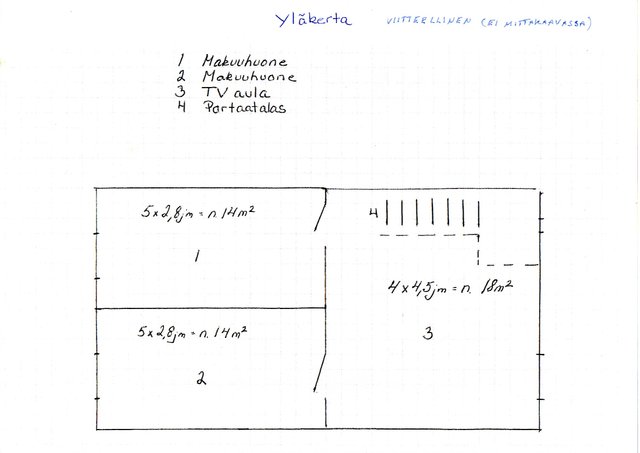 Yläkerta VIITTEELLINEN (EI MITTAKAAVASSA)
1 Makuuhuone
2 Makuuhuone
3 TV aula
4 Portaatalas
5 x 2,8jm = n. 14 m²
4
1
4 x 4,5jm = n. 18m²
5 x 2,8jm = n. 14 m²
3
2